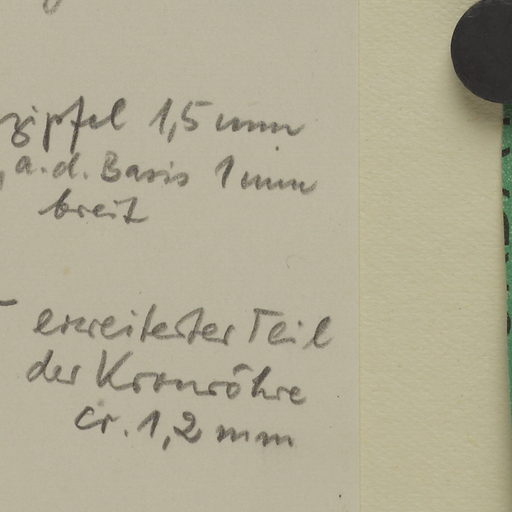 zipfel 1,5 mm
a. d. Basis 1 mm
breit
erweiterter Teil
der Kronröhre
cr. 1,2 mm